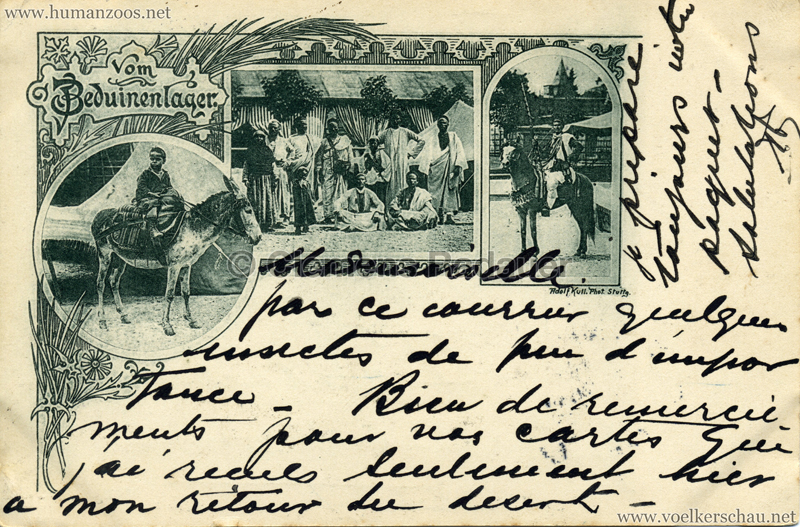 www.humanzoos.net
Vom
Beduinenlager.
Adolf Kull. Phot. Stuttg.
Mademoiselle.
par ce courrier quelques
insectes de peu d'impor
tance – Bien de remercie
ments pour vos cartes que
j'ai recues seulement hier
a mon retour du desert –
je prépare
toujours votre
paquet –
salutations
© Clemens Radauer
www.voelkerschau.net